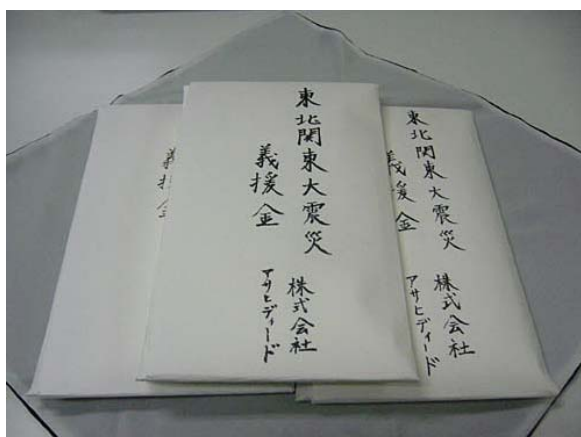 東北関東大震災
義援金
株式会社
アサヒディード
東北関東大震災
義援金
株式会社
アサヒディード
義援